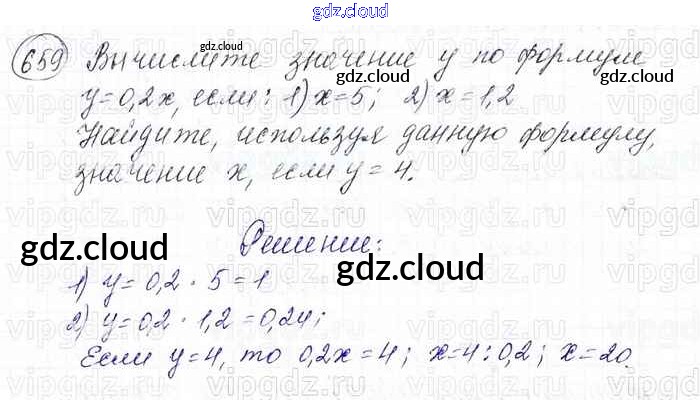 gdz.cloud
659 Вычислите значение y по формуле
gdz.cloud gdz.cloud
y=0,2x, если: 1) x=5; 2) x=1,2
Найдите, используя данную формулу,
значение x, если y=4.
vipgdz.ru vipgdz.ru vipgdz.ru
Решение:
gdz.cloud gdz.cloud
1) y=0,2·5=1
gdz.cloud
2) y=0,2·1,2=0,24;
Если y=4, то 0,2x=4; x=4:0,2; x=20.